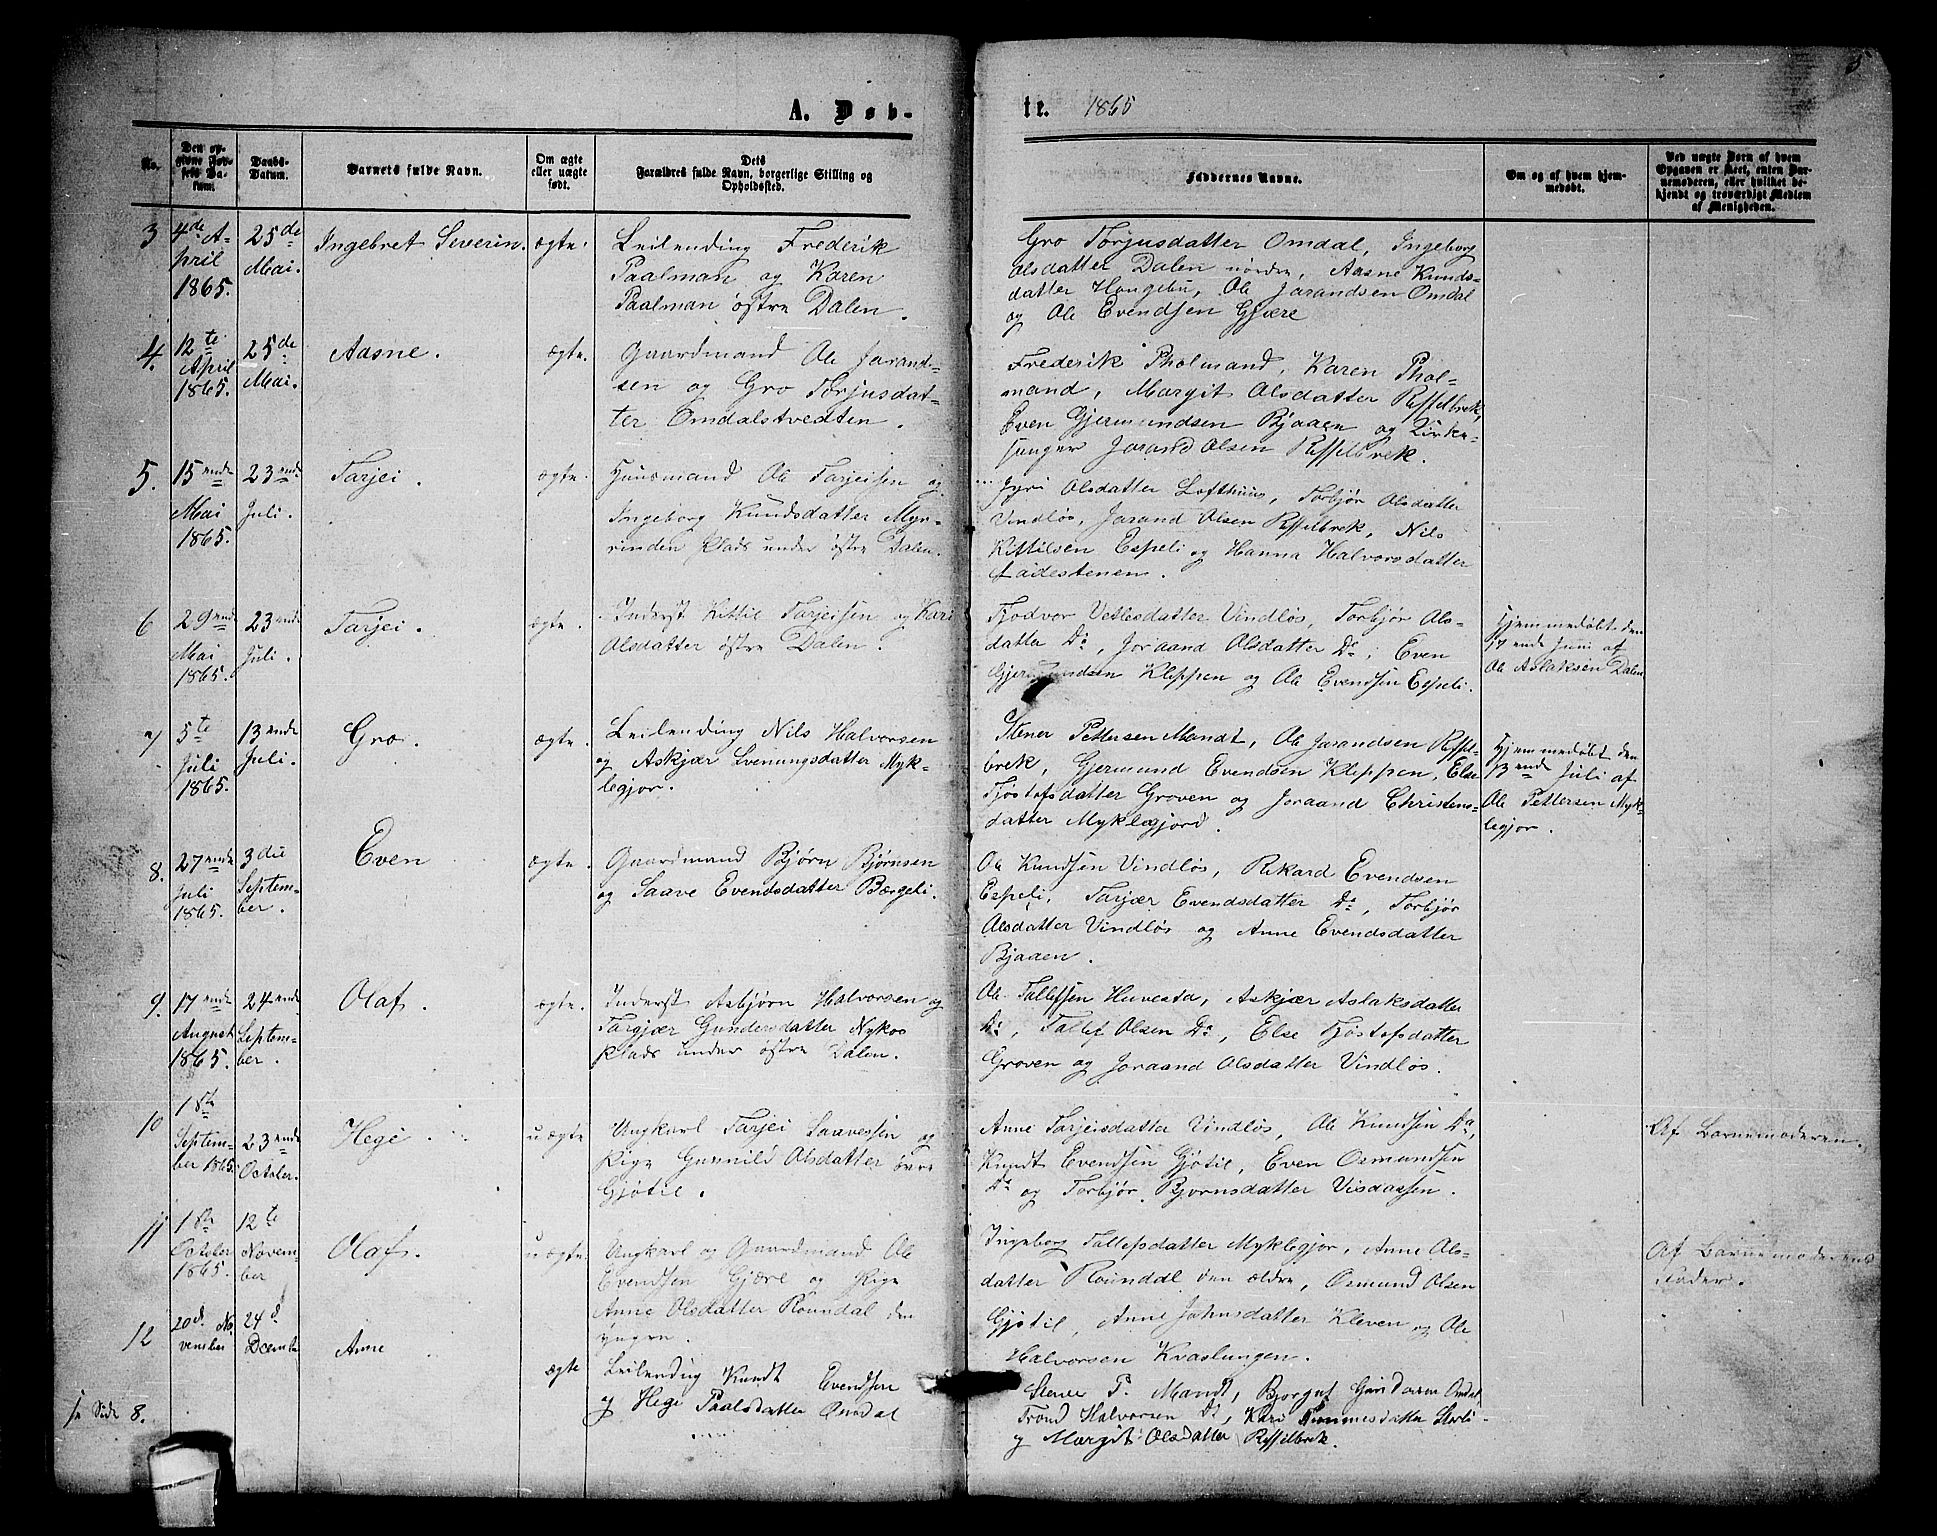 A. Døb-
te. 1865
5
No.
Den opgivne Fødsels Datum.
Daabs-Datum.
Barnets fulde Navn.
Om ægte eller uægte født.
Dets Forældres fulde Navn, borgerlige Stilling og Opholdssted.
Faddernes Navne.
Om og af hvem hjemmedøbt.
Ved uægte Børn af hvem Opgaven er skeet, enten Barnemoderen, eller hvilket bekjendt og troværdigt Medlem af Menigheden.
3
4de A-
pril
1865.
25de
Mai.
Ingebret Severin.
ægte.
Leilending Frederik
Paalman og Karen
Paalman østre Dalen.
Gro Torjusdatter Omdal, Ingeborg
Olsdatter Dalen nordre, Aasne Kunds-
datter Hougebu, Ole Jarandsen Omdal
og Ole Evendsen Gjære
4.
12te
April
1865.
25de
Mai.
Aasne.
ægte.
Gaardmand Ole Jarand-
sen og Gro Torjusdat-
ter Omdalstvedten.
Frederik Pholmand, Karen Phol-
mand, Margit Olsdatter Ripelbrek,
Even Gjermundsen Bjaaen og Kirke-
sanger Jarand Olsen Ripelbrek.
5.
15ende
Mai
1865.
23ende
Juli.
Tarjei.
ægte.
Huusmand Ole Tarjeisen og
Ingeborg Kundsdatter Myr-
rinden Plads under østre Dalen.
Jyri Olsdatter Lofthuus, Torbjør Olsdatter
Vindløs, Jarand Olsen Ripelbrek, Nils
Kittilsen Espeli og Hanna Halvorsdatter
Ladestenen.
6
29ende
Mai
1865.
23ende
Juli.
Tarjei.
ægte.
Inderst Kittil Tarjeisen og Kari
Olsdatter østre Dalen.
Tjodvor Vetlesdatter Vindløs, Torbjør Ols-
datter Do, Joraand Olsdatter Do, Even
Gjermundsen Kleppen og Ole Evendsen Espeli.
Hjemmedøbt den
17ende Juni af
Ole Aslaksen Dalen
7
5te
Juli
1865.
13ende
Juli.
Gro.
ægte.
Leilending Nils Halvorsen
og Askjær Svenungsdatter Myk-
legjor.
Stener Pettersen Mandt, Ole Jarandsen Ripel-
brek, Gjermund Evendsen Kleppen, Else
Tjøstofsdatter Groven og Joraand Christens-
datter Myklegjord.
Hjemmedøbt den
13ende Juli af
Ole Pettersen Myk-
legjor.
8.
27ende
Juli
1865.
3die
Septem-
ber.
Even
ægte.
Gaardmand Bjørn Bjørnsen
og Saave Evendsdatter Bærgeli.
Ole Kundsen Vindløs, Rikard Evendsen
Espeli, Tarjær Evendsdatter Do, Torbjør
Olsdatter Vindløs og Anne Evendsdatter
Bjaaen.
9.
17ende
August
1865.
24ende
Septem-
ber.
Olaf.
ægte.
Inderst Asbjørn Halvorsen og
Targjær Gundersdatter Nykos
Plads under østre Dalen.
Ole Tallefsen Huvestad, Askjær Aslaksdatter
Do, Tallef Olsen Do, Else Tjøstofsdatter
Groven og Joraand Olsdatter Vindløs.
10
1ste
Septem-
ber 1865.
23ende
October.
Hege
uægte
Ungkarl Tarjei Saavessen og
Pige Gunnild Olsdatter øvre
Gjøtil.
Anne Tarjeisdatter Vindløs, Ole Kundsen Do,
Kundt Evendsen Gjøtil, Even Osmundsen
Do og Torbjør Bjornsdatter Visdassen.
Af Barnemoderen.
11
1ste
October
1865.
12te
Novem-
ber
Olaf.
uægte.
Ungkarl og Gaardmand Ole
Evendsen Gjære og Pige
Anne Olsdatter Roundal den
yngre.
Ingeborg Tallefsdatter Myklegjor, Anne Ols-
datter Roundal den ældre, Osmund Olsen
Gjøtil, Anne Johnsdatter Kleven og Ole
Halvorsen Kvaslungen.
Af Barnemoderens
Fader.
12
20d. No-
vember
24d
Decembr
Anne
ægte
Leilending Kundt Evendsen
og Hege Paalsdatter Omdal
Stener P. Mandt, Bjorguf Omdal
Trond Halvorsen Do, Kari Storli
og Margit Olsdatter Ripelbrek.
se Side 8.